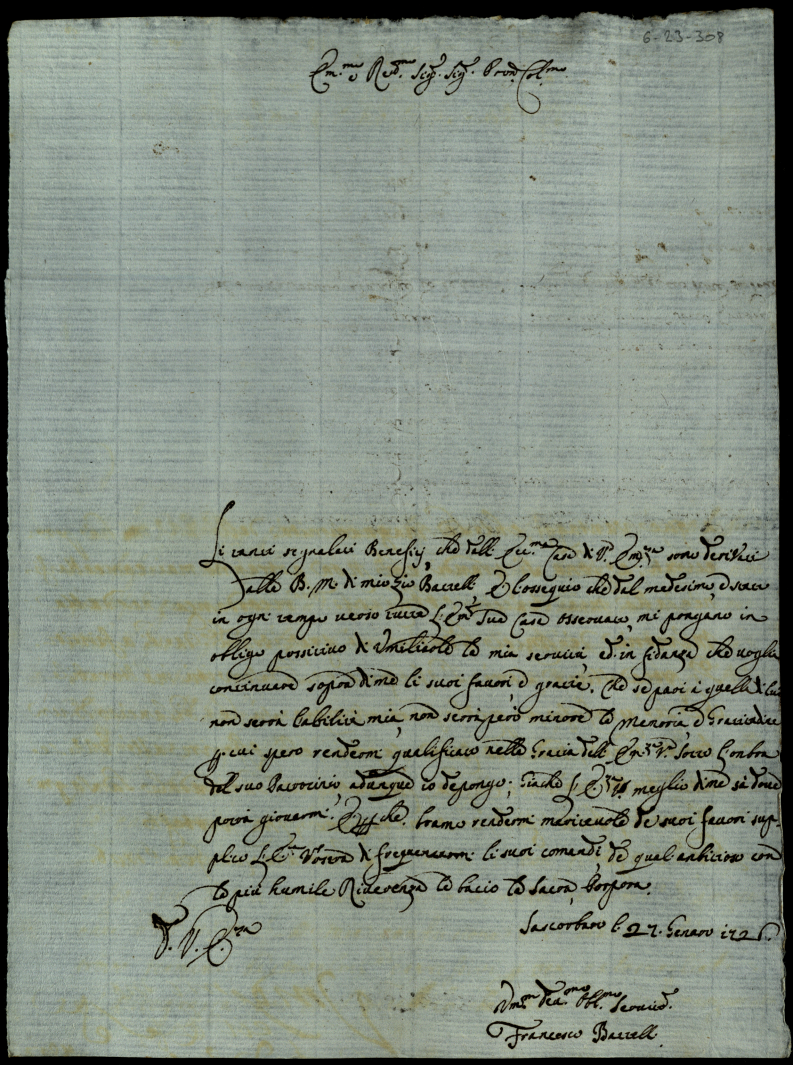 6-23-308
Em.mo e Rev.mo Sig.r Sig.r Pron. Col.mo
Li tanti segnalati Beneficij, che dall' Ecc.ma Casa di V.ra Em.za sono derivati
dalla B. M. di mio Zio Battell, e l'ossequio che dal medesimo, è stato
in ogni tempo verso tutta l'Em.ma Sua Casa osservato, mi pongano in
obligo possitivo di Umiliarle la mia servitù, et in fidanza che voglia
continuare sopra di me li suoi favori e gratie; Che se pari à quella di lui
non serrà l'abilità mia, non serrà però minore la memoria, e Gratitudine
p. cui spero rendermi qualificato nella Gratia dell' Em.za V.ra Sotto l'ombra
del suo Patrocinio adunque io depongo; Giache l' E.za meglio di me sà dove
potrà giovarmi. E perche bramo rendermi meritevole de suoi favori sup-
plico l' E.za Vostra di frequentarmi li suoi comandi, de qual ambitioso con
la più humile Riverenza le bacio la Sacra Porpora.
D. V. E.za
Sascorbaro li 27. Genaro 172
Um.mo Dev.mo Obl.mo Servid.
Francesco Battell.